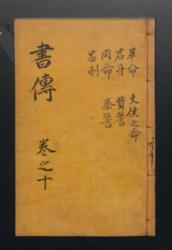 畢命 文侯之命
君牙 費誓
冏命 秦誓
呂刑
書傳
卷之十